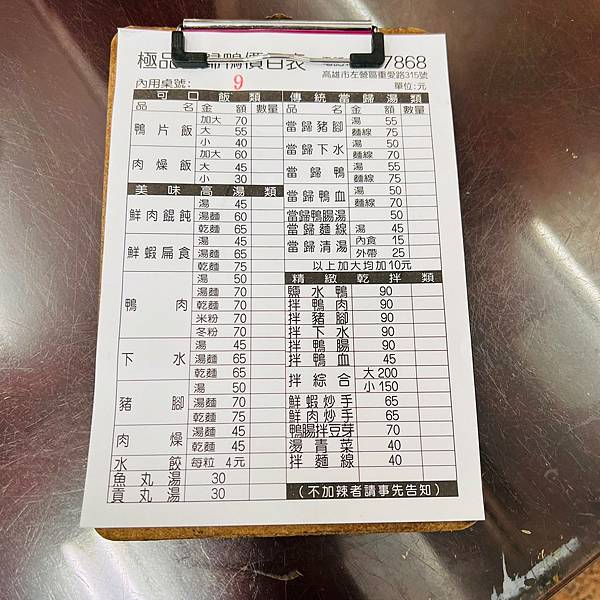 極品 歸鴨價目表 7868
高雄市左營區重愛路315號
內用桌號: 9 單位:元
可口飯類
品名 金額 數量
鴨片飯 加大 70
大 55
小 40
肉燥飯 加大 60
大 45
小 30
美味高湯類
鮮肉餛飩 湯 45
湯麵 60
乾麵 65
鮮蝦扁食 湯 45
湯麵 65
乾麵 75
鴨肉 湯 50
湯麵 70
乾麵 70
米粉 70
冬粉 70
下水 湯 45
湯麵 65
乾麵 65
豬腳 湯 50
湯麵 70
乾麵 75
肉燥 湯麵 45
乾麵 45
水餃 每粒 4元
魚丸湯 30
貢丸湯 30
傳統當歸湯類
品名 金額 數量
當歸豬腳 湯 55
麵線 75
當歸下水 湯 50
麵線 70
當歸鴨 湯 55
麵線 75
當歸鴨血 湯 50
麵線 70
當歸鴨腸湯 50
當歸麵線 湯 45
當歸清湯 內食 15
外帶 25
以上加大均加10元
精緻乾拌類
鹽水鴨 90
拌鴨肉 90
拌豬腳 90
拌下水 90
拌鴨腸 90
拌鴨血 45
拌綜合 大 200
小 150
鮮蝦炒手 65
鮮肉炒手 65
鴨腸拌豆芽 70
燙青菜 40
拌麵線 40
(不加辣者請事先告知)